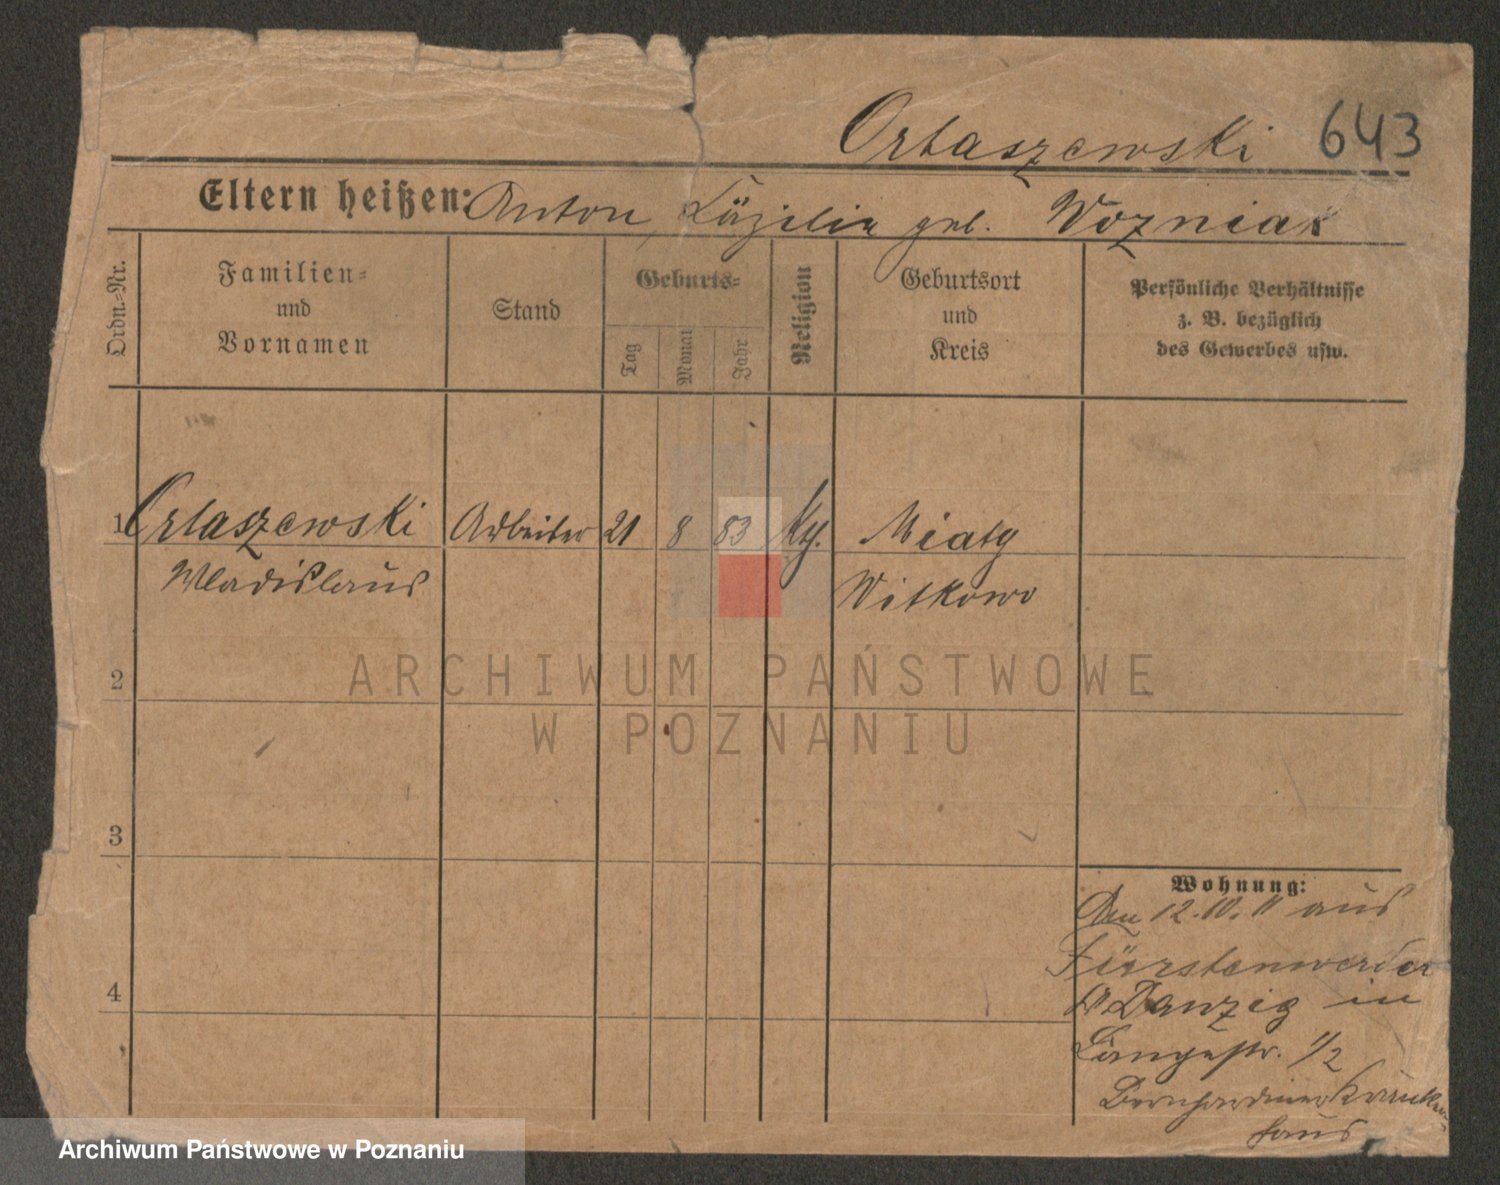 Ortaszewski 643
Eltern heißen: Anton, Cäzilia geb. Wozniak
Ordn.-Nr.
Familien-
und
Vornamen
Stand
Geburts-
Tag
Monat
Jahr
Religion
Geburtsort
und
Kreis
Persönliche Verhältnisse
z. B. bezüglich
des Gewerbes usw.
1 Ortaszewski Arbeiter 21 8 83 Miaty
Wladislaus Witkowo
ARCHIWUM PAŃSTWOWE
W POZNANIU
2
3
4
Wohnung:
Am 12.10.11 aus
Fürstenwerder
Danzig in
Langestr. 1/2
Bernhardiner Kranken
haus
Archiwum Państwowe w Poznaniu